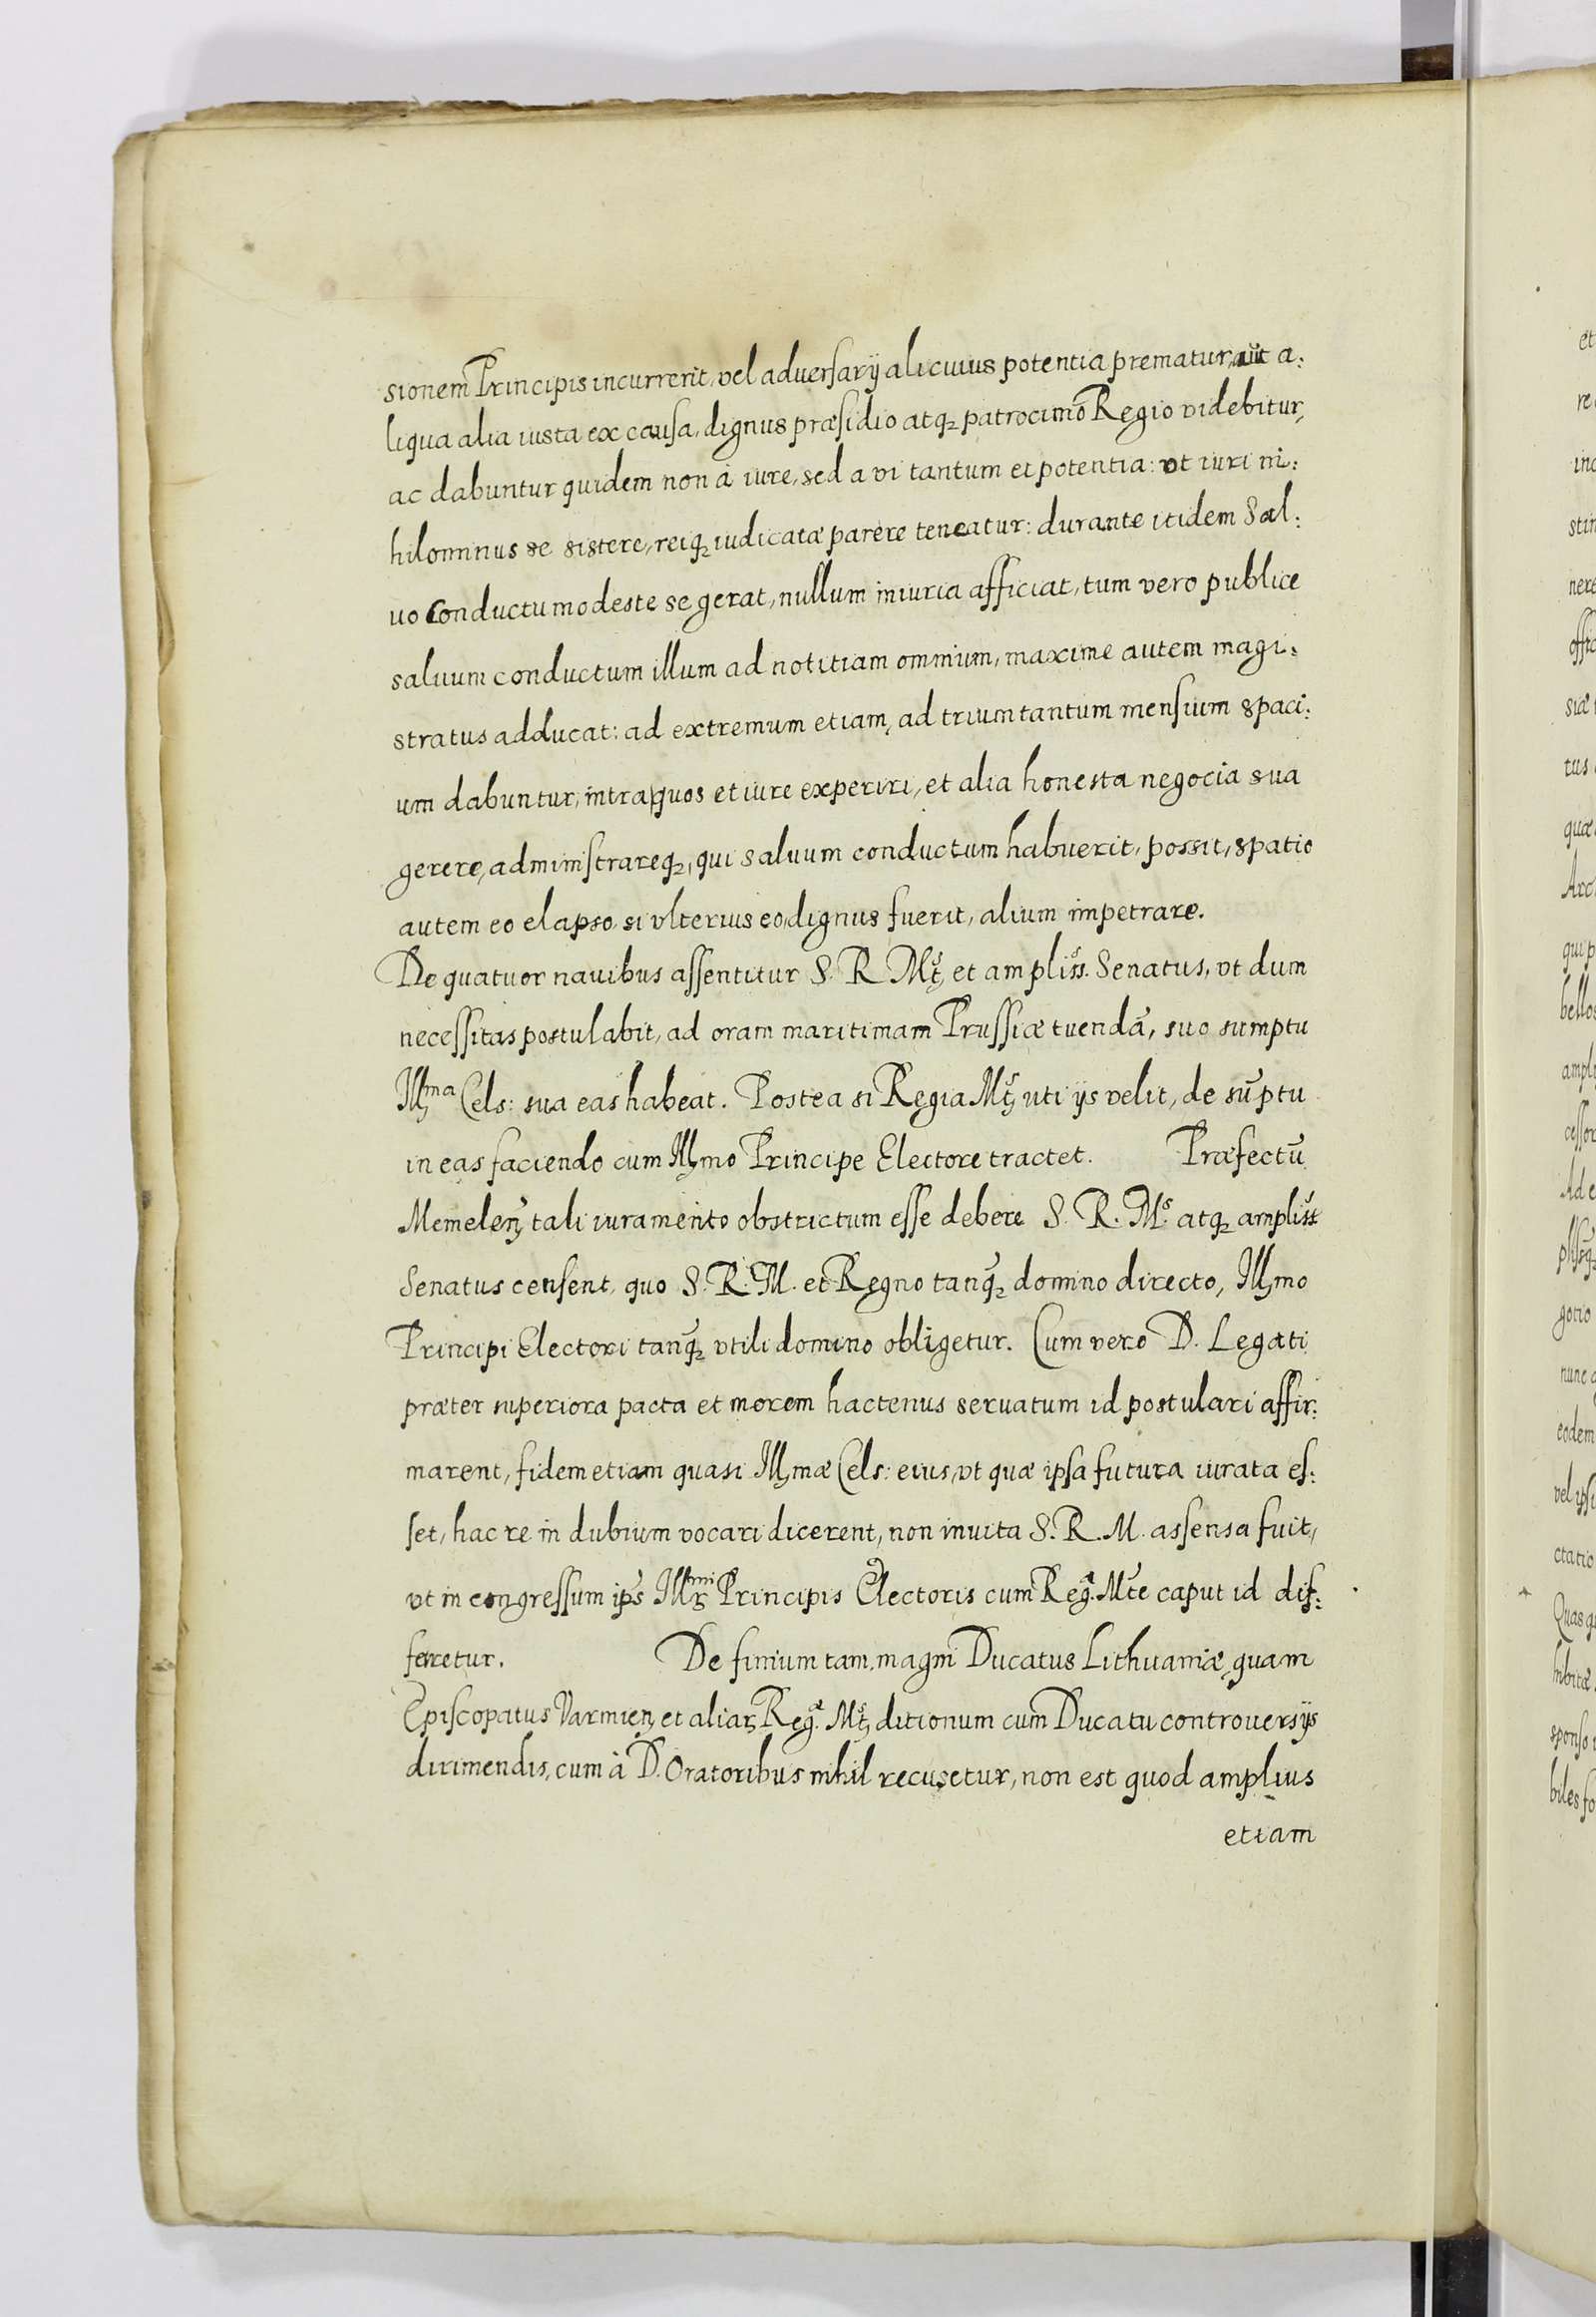 sionem Principis incurrerit, vel aduersarÿ alicuius potentia prematur, aut a:
liqua alia iusta ex causa, dignus præsidio atq; patrocinio Regio videbitur,
ac dabuntur quidem non à iure, sed a vi tantum et potentia: vt iuri ni:
hilominus se sistere, reiq; iudicatæ parere teneatur: durante itidem Sal:
uo Conductu modeste se gerat, nullum iniuria afficiat, tum vero publice
saluum conductum illum ad notitiam omnium, maxime autem magi:
stratus adducat: ad extremum etiam, ad trium tantum mensium spaci:
um dabuntur, intra quos et iure experiri, et alia honesta negocia sua
gerere, administrareq;, qui saluum conductum habuerit, possit, spatio
autem eo elapso, si vlterius eo, dignus fuerit, alium impetrare.
De quatuor nauibus assentitur S. R. Mts, et ampliss. Senatus, vt dum
necessitas postulabit, ad oram maritimam Prussiæ tuendã, suo sumptu
Illma Cels: sua eas habeat. Postea si Regia Mts uti ÿs velit, de sũptu
in eas faciendo cum Illmo Principe Electore tractet. Præfectũ
Memelen, tali iuramento obstrictum esse debere S. R. Ms. atq; ampliss
Senatus censent, quo S. R. M. et Regno tanq̃; domino directo, Illmo
Principi Electori tanq̃; vtili domino obligetur. Cum vero D. Legati
præter superiora pacta et morem hactenus seruatum id postulari affir:
marent, fidem etiam quasi Illmæ Cels: eius, vt quæ ipsa futura iurata es:
set, hac re in dubium vocari dicerent, non inuita S. R. M. assensa fuit,
vt in congressum ips Illmi Principis Electoris cum Rega. Mte caput id dif:
ferretur. De finium tam, magni Ducatus Lithuaniæ, quam
Episcopatus Varmien, et aliar, Rega. Mts ditionum cum Ducatu controuersÿs
dirimendis, cum à D. Oratoribus nihil recusetur, non est quod amplius
etiam